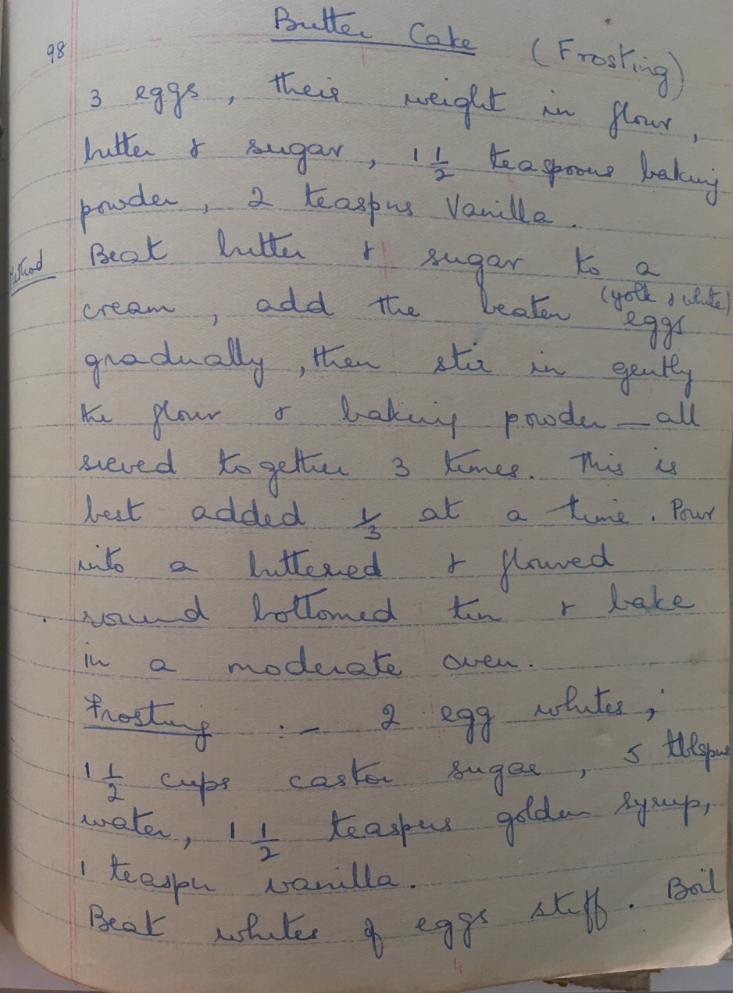 98
Butter Cake (Frosting)
3 eggs, their weight in flour,
butter & sugar, 1 1/2 teaspoons baking
powder, 2 teaspns Vanilla.
Method
Beat butter & sugar to a
cream, add the beaten (yolk & white) eggs
gradually, then stir in gently
the flour & baking powder — all
sieved together 3 times. This is
best added 1/3 at a time. Pour
into a buttered & floured
round bottomed tin & bake
in a moderate oven.
Frosting :- 2 egg whites,
1 1/2 cups castor sugar, 5 tblspns
water, 1 1/2 teaspns golden syrup,
1 teaspn vanilla.
Beat whites of eggs stiff. Boil